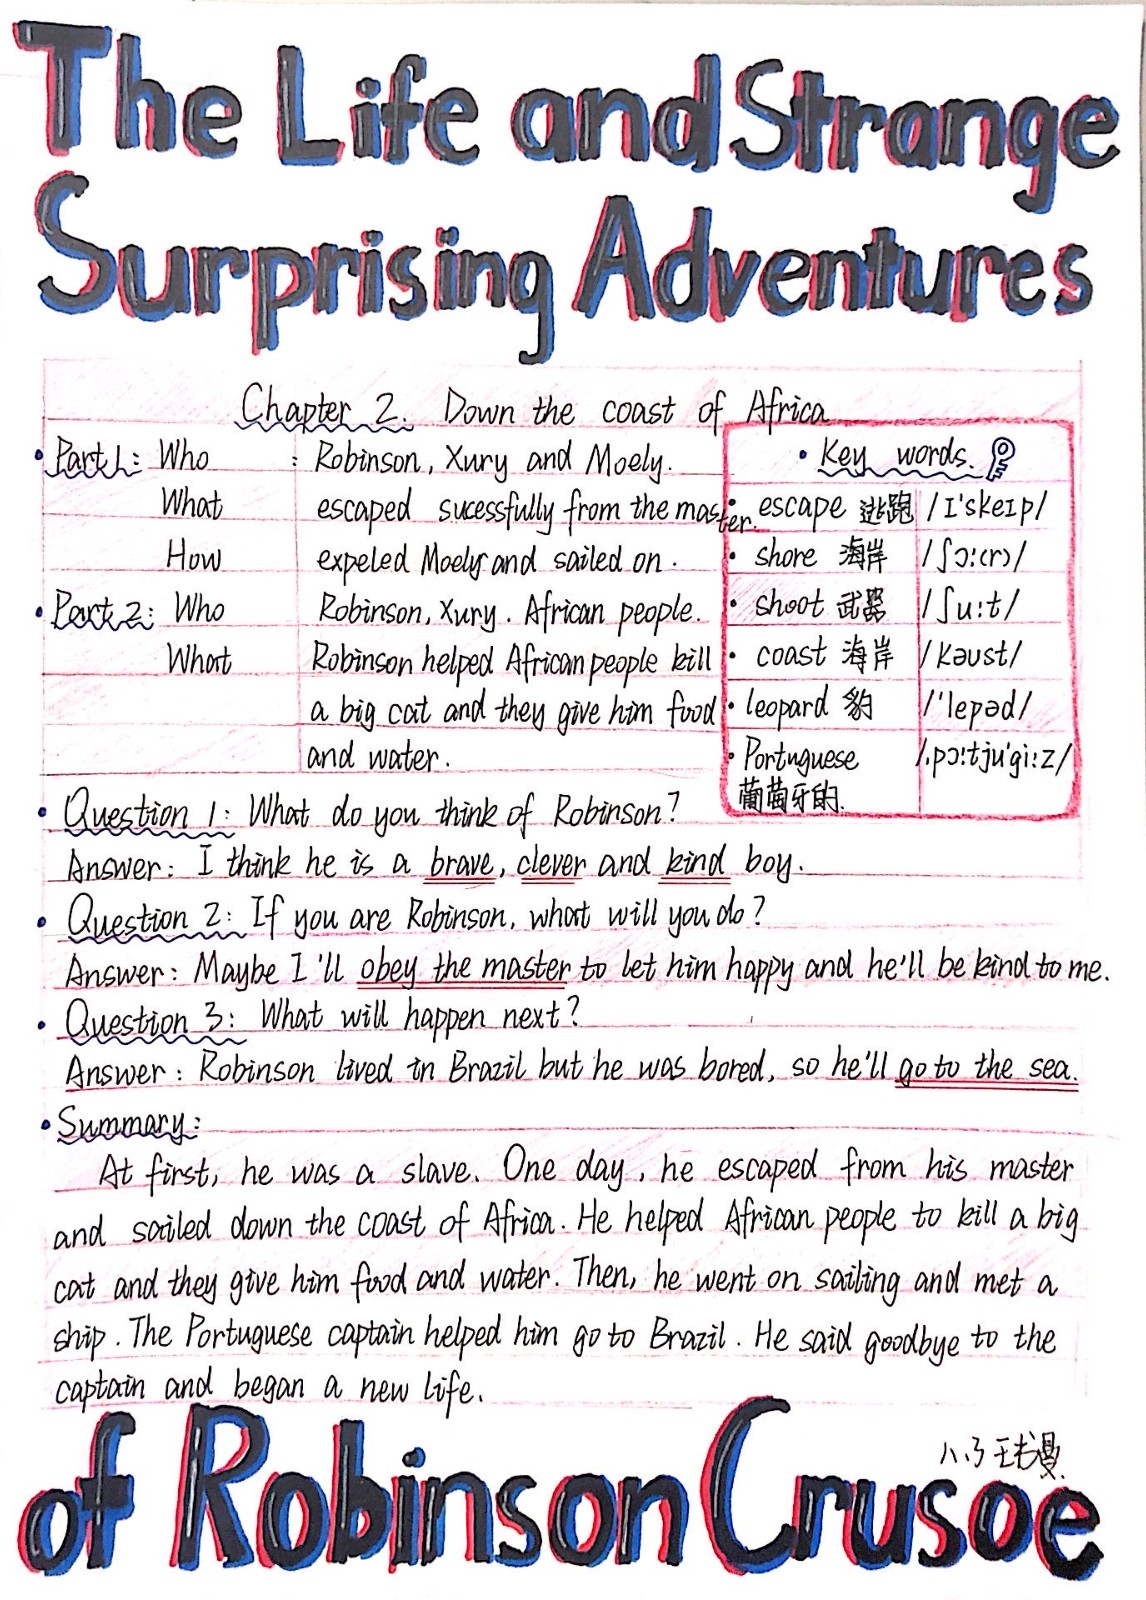 The Life and Strange
Surprising Adventures
Chapter 2. Down the coast of Africa
• Part 1: Who : Robinson, Xury and Moely.
What escaped sucessfully from the master.
How expeled Moely and sailed on.
• Part 2: Who Robinson, Xury. African people.
What Robinson helped African people kill
a big cat and they give him food
and water.
• Key words.
• escape 逃跑 /ɪ'skeɪp/
• shore 海岸 /ʃɔ:(r)/
• shoot 武器 /ʃu:t/
• coast 海岸 /kəʊst/
• leopard 豹 /'lepəd/
• Portuguese /ˌpɔ:tju'gi:z/
葡萄牙的.
• Question 1: What do you think of Robinson?
Answer: I think he is a brave, clever and kind boy.
• Question 2: If you are Robinson, what will you do?
Answer: Maybe I'll obey the master to let him happy and he'll be kind to me.
• Question 3: What will happen next?
Answer: Robinson lived in Brazil but he was bored, so he'll go to the sea.
• Summary:
At first, he was a slave. One day, he escaped from his master
and sailed down the coast of Africa. He helped African people to kill a big
cat and they give him food and water. Then, he went on sailing and met a
ship. The Portuguese captain helped him go to Brazil. He said goodbye to the
captain and began a new life.
of Robinson Crusoe